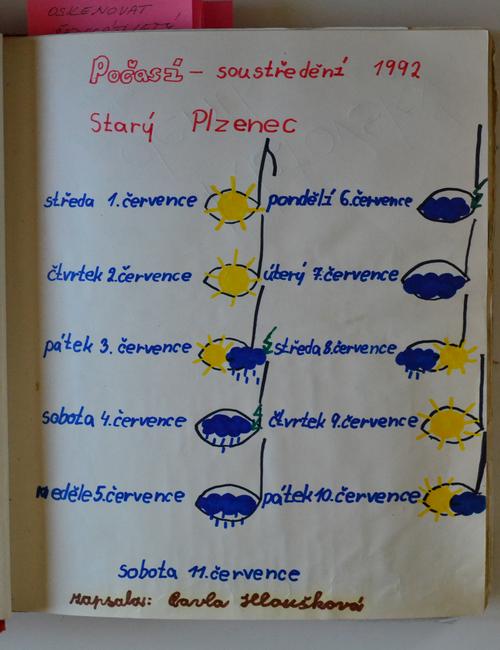 OSKENOVAT
Počasí - soustředění 1992
Starý Plzenec
středa 1.července
čtvrtek 2.července
pátek 3. července
sobota 4.července
neděle 5.července
pondělí 6.července
úterý 7.července
středa 8.července
čtvrtek 9.července
pátek 10.července
sobota 11.července
Napsala: Pavla Hloušková